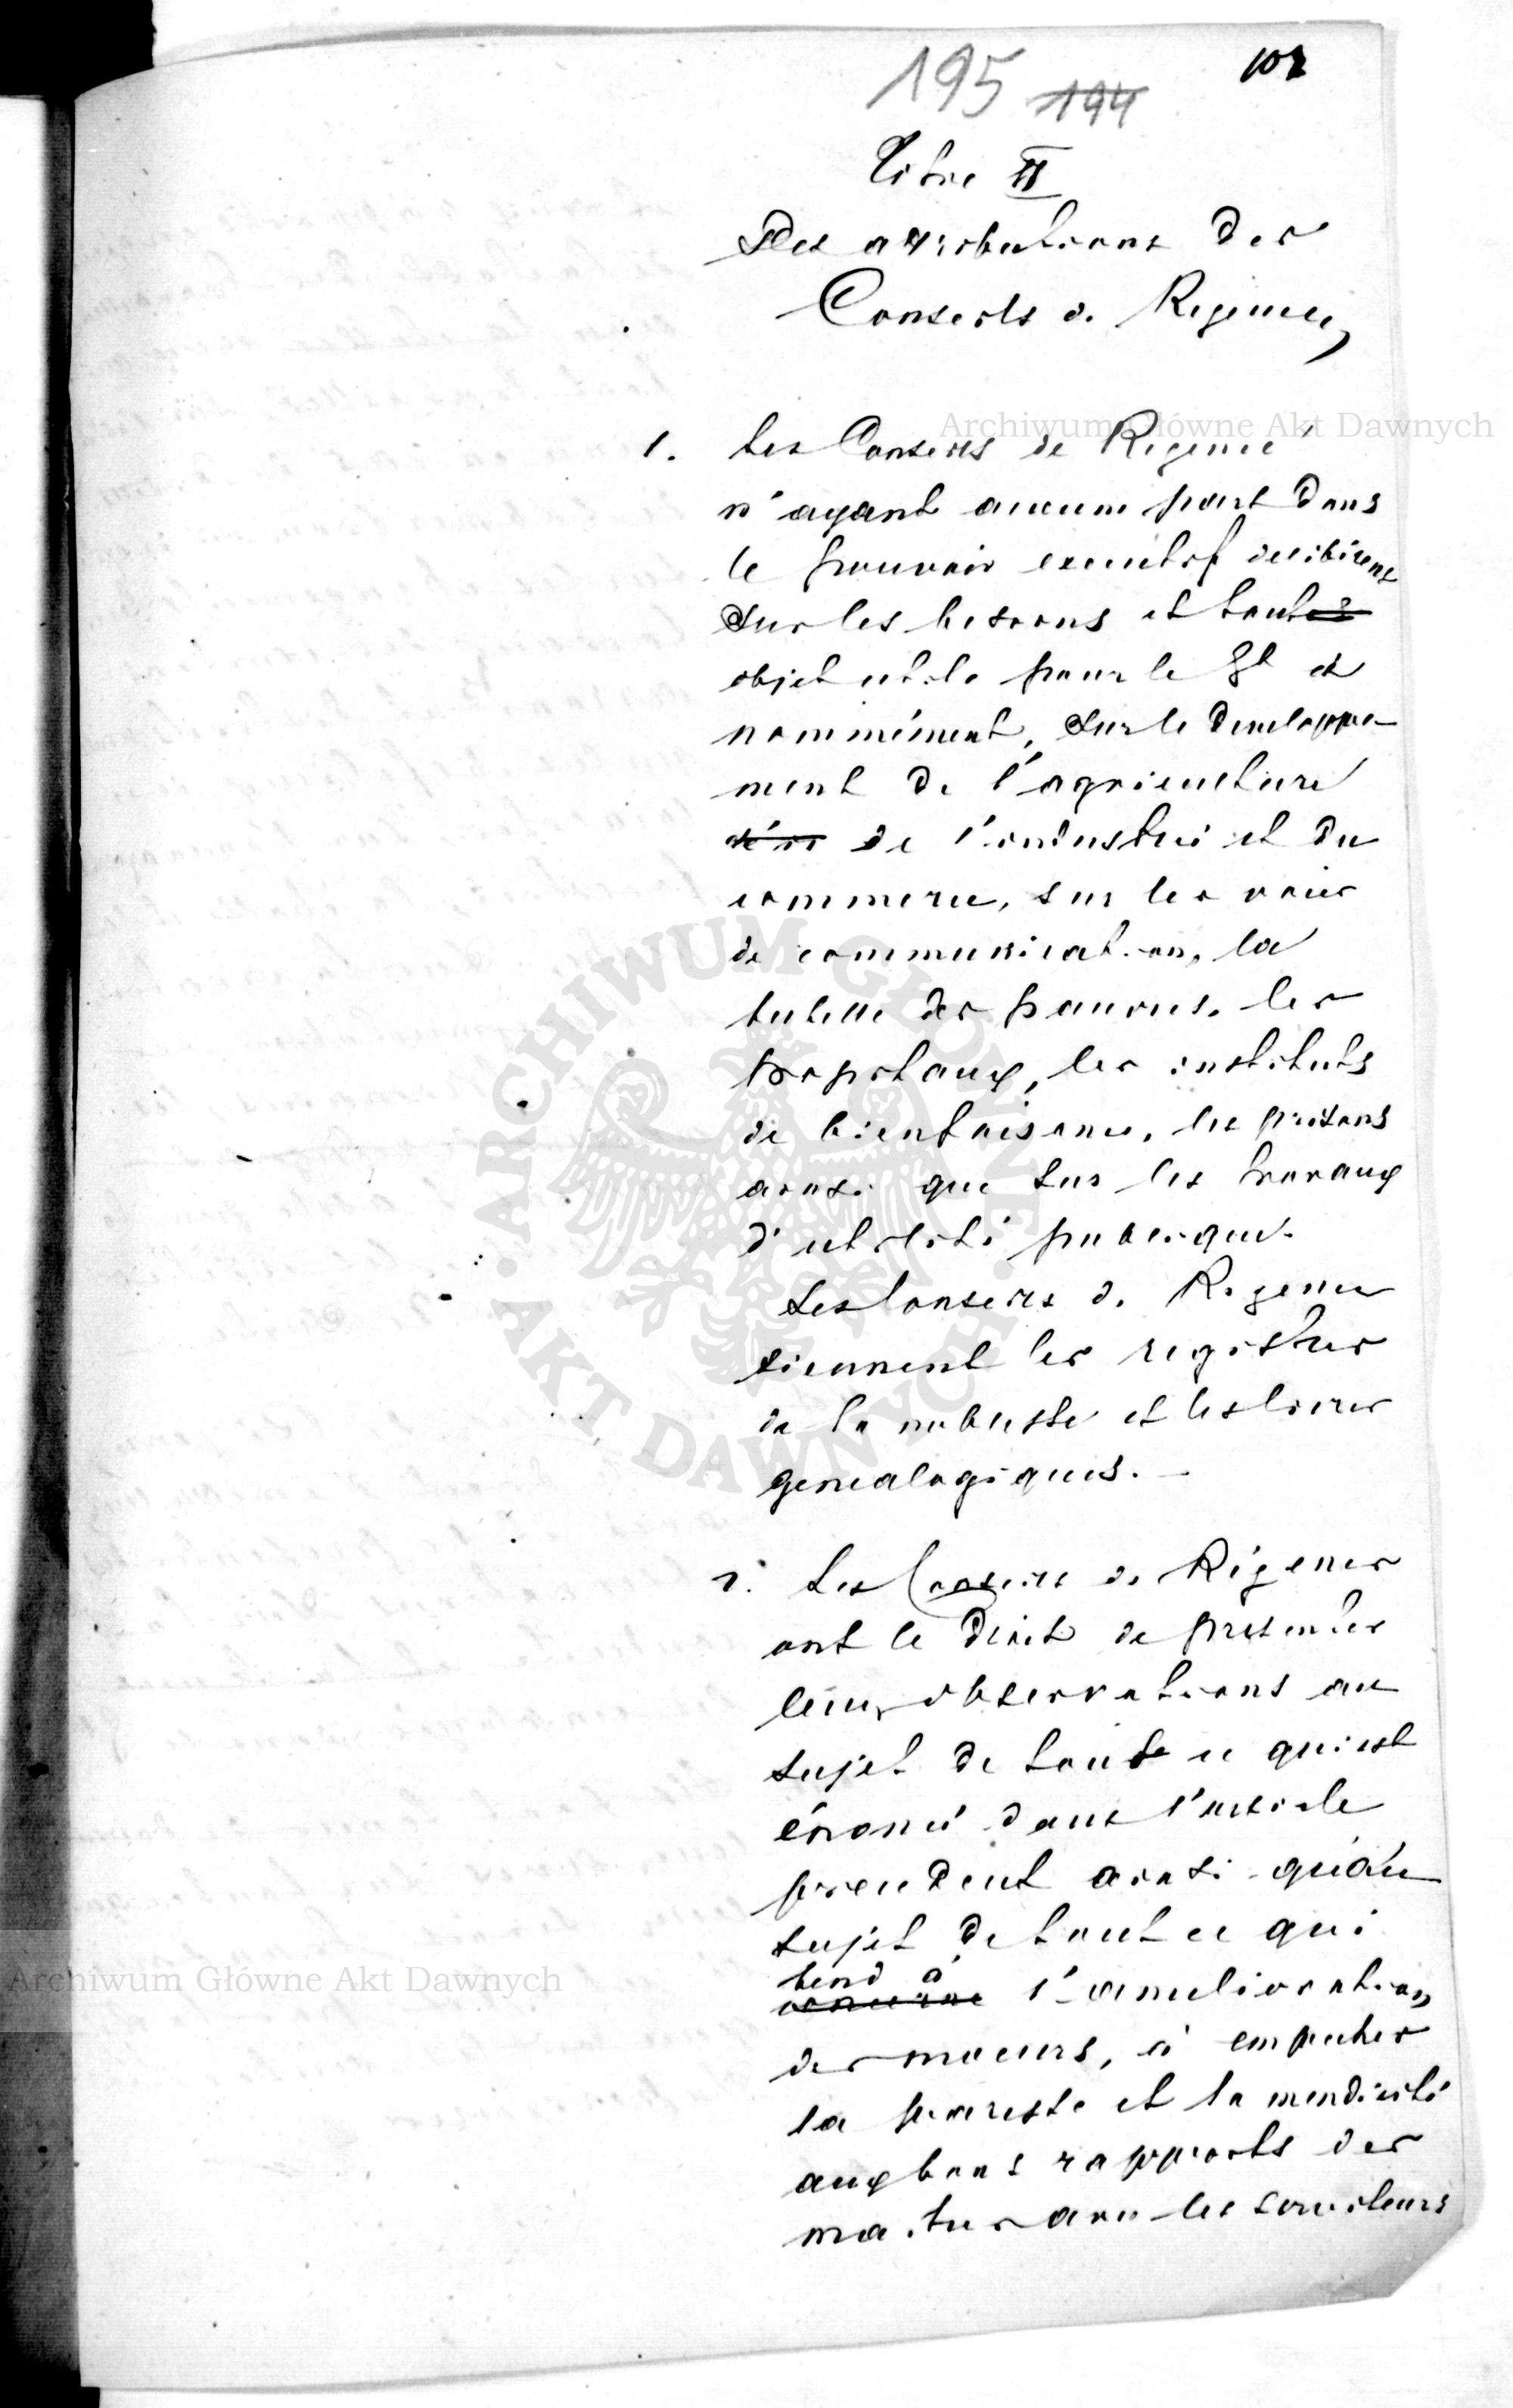 195 194
102
Titre II
Des attributions des
Conseils de Regence
Archiwum Główne Akt Dawnych
1. Les Conseils de Regence
n'ayant aucune part dans
le pouvoir executif delibèrent
sur les besoins et toutes
objet utile pour le Gt et
nommément, sur le developpe-
ment de l'agriculture
de l'industrie et du
commerce, sur les voies
de communication, la
tutelle des pauvres, les
hopitaux, les instituts
de bienfaisance, les prisons
ainsi que sur les travaux
d'utilité publique.
Les Conseils de Regence
tiennent les registres
de la noblesse et les livres
genealogiques. —
2. Les Conseils de Régence
ont le droit de presenter
leurs observations au
sujet de toute ce qui est
énoncé dans l'article
precedent ainsi qu'au
sujet de tout ce qui
tend à
concerne l'amelioration
des moeurs, à empecher
la paresse et la mendicité
aux bons rapports des
maitres avec les serviteurs
Archiwum Główne Akt Dawnych
ARCHIWUM GŁÓWNE AKT DAWNYCH